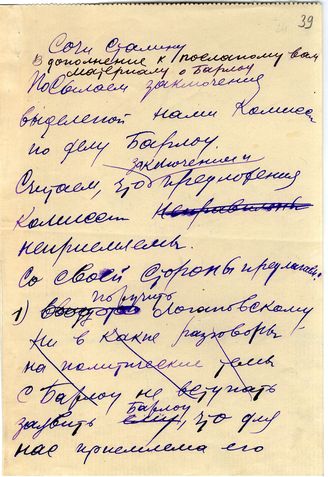 39
Сочи Сталину
В дополнение к посланому вам
материалу о Барлоу
Посылаем заключения
выделеной нами Комисси
по делу Барлоу.
заключения и
Считаем, что предложения
Комиссии
неприемлемы.
Со своей стороны предлагаем:
поручить
1) Логановскому
ни в какие разговоры
на политические темы
с Барлоу не вступать
Барлоу
заявить ему, что для
нас приемлема его